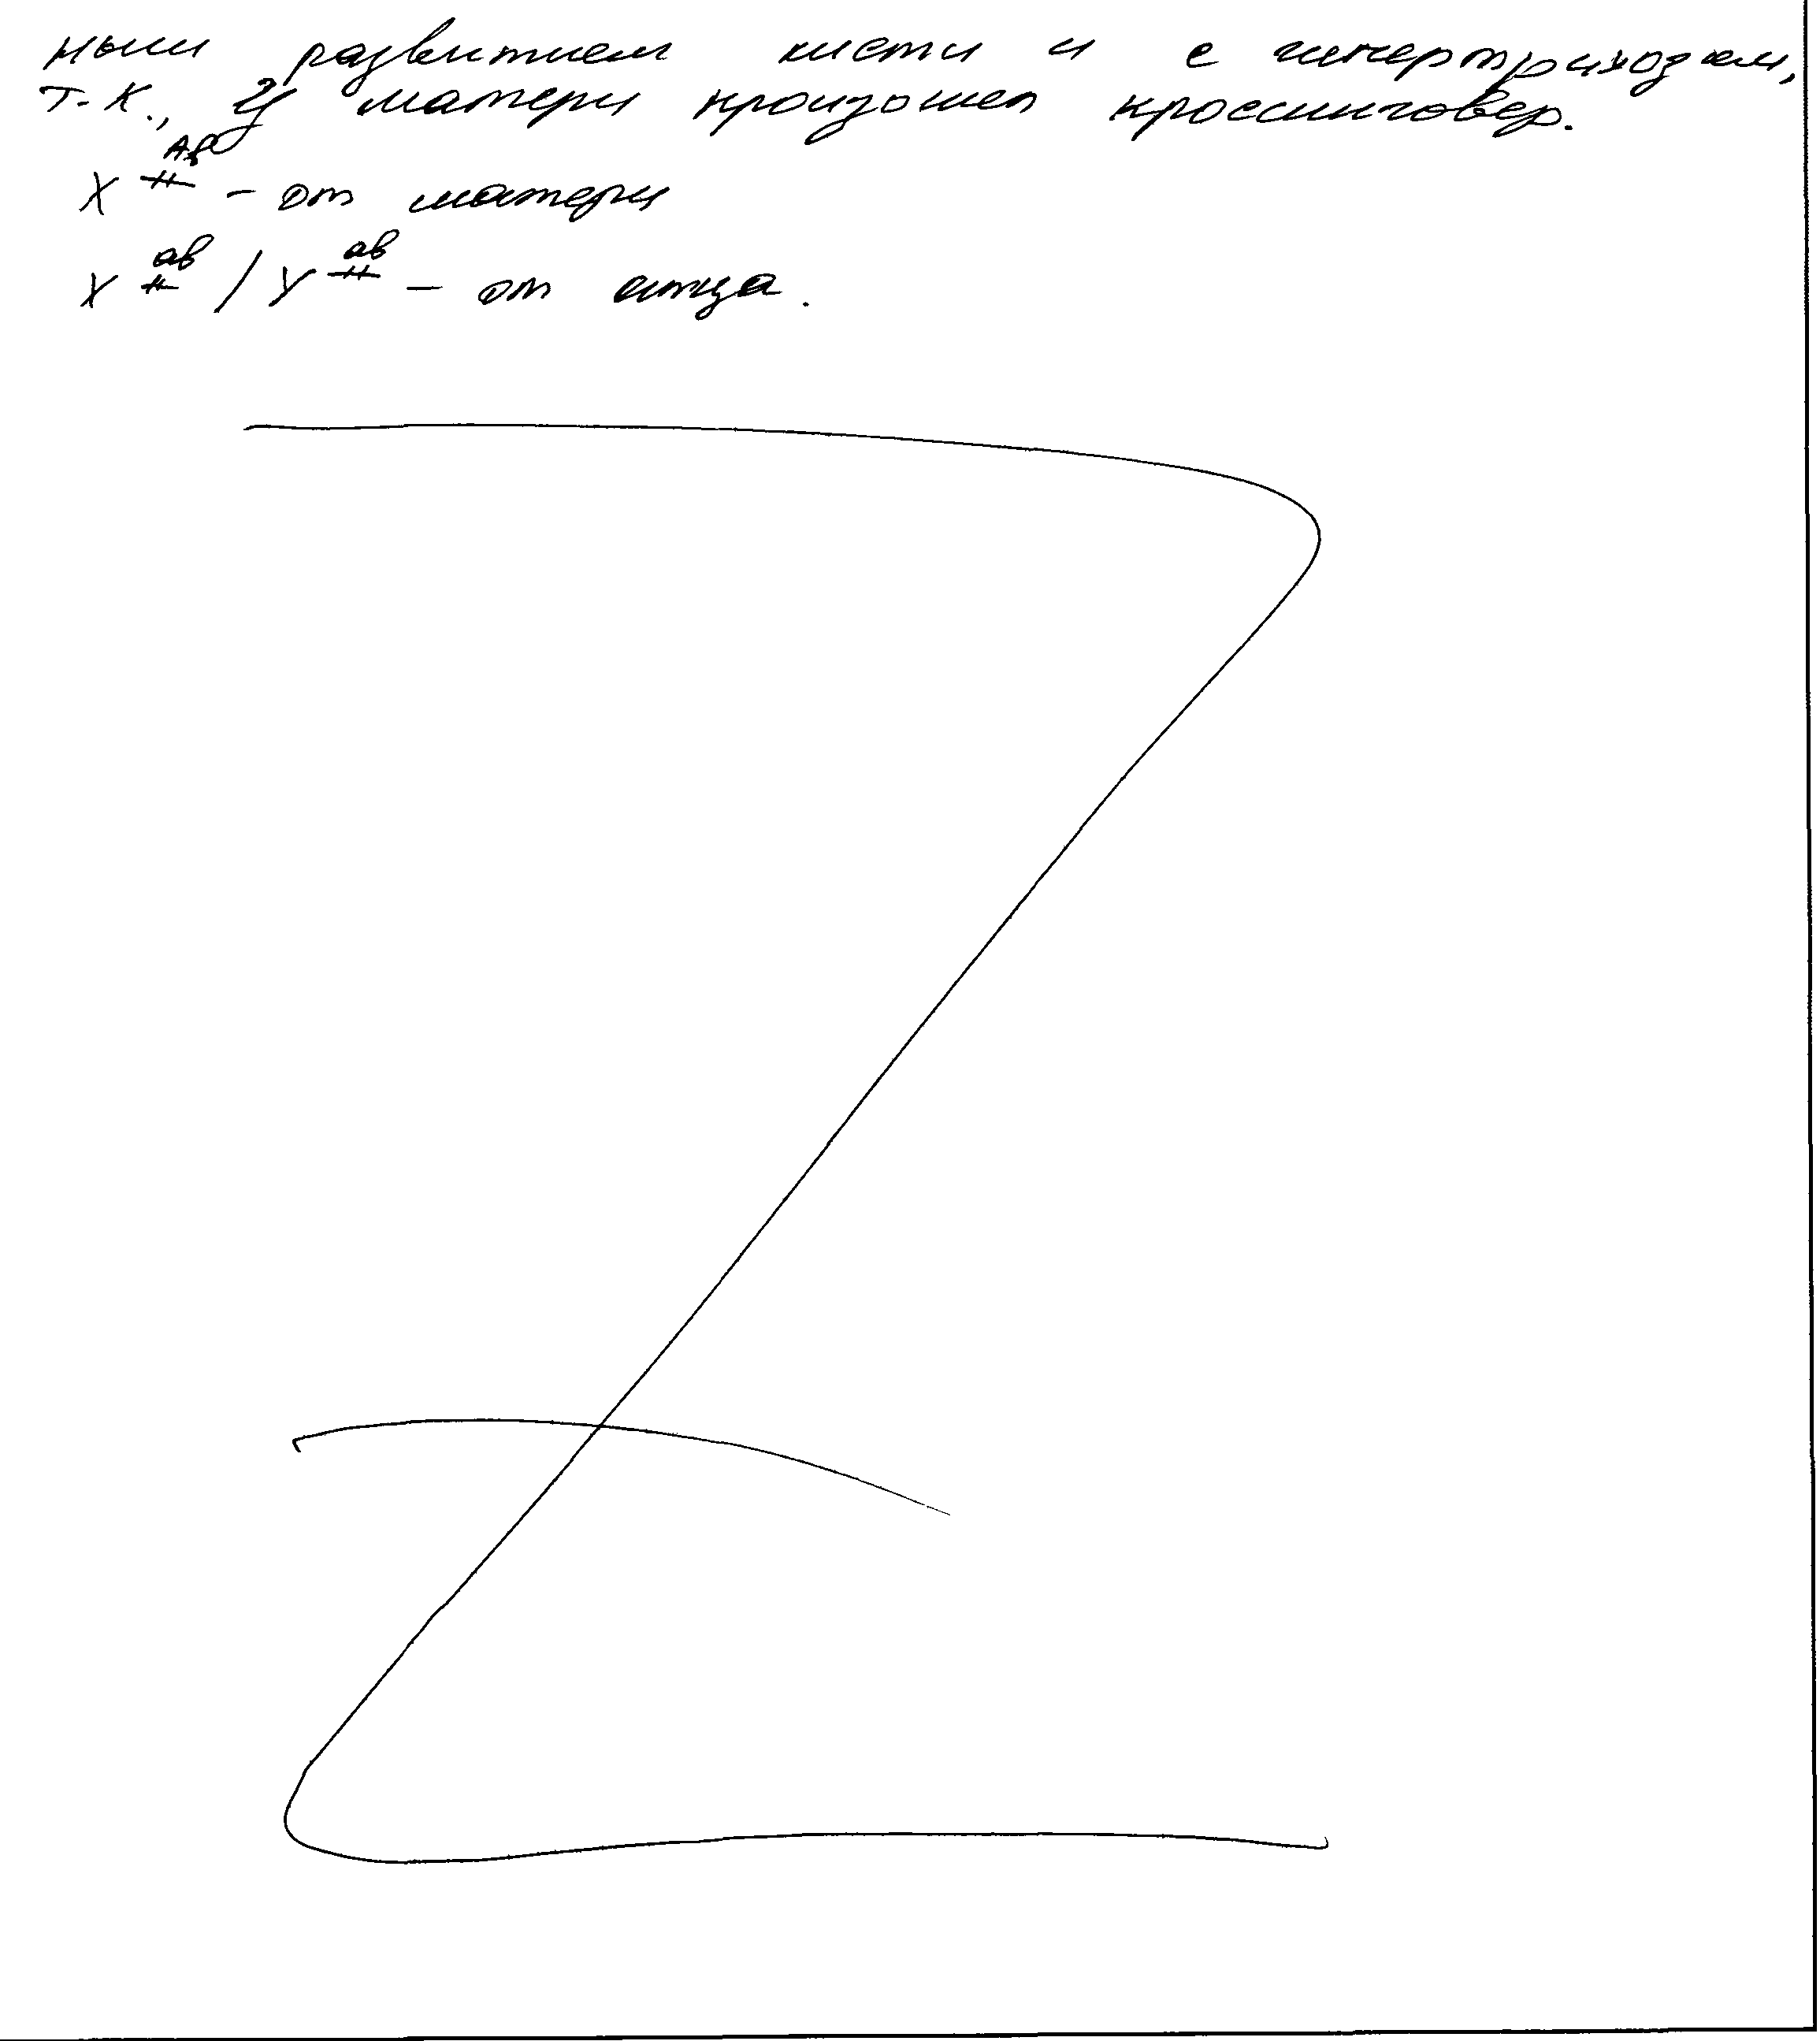 ным развитием кисти и с гипертрихозом,
т.к., у матери произошел кроссинговер.
X Ab – от матери
X ab / Y ab – от отца.